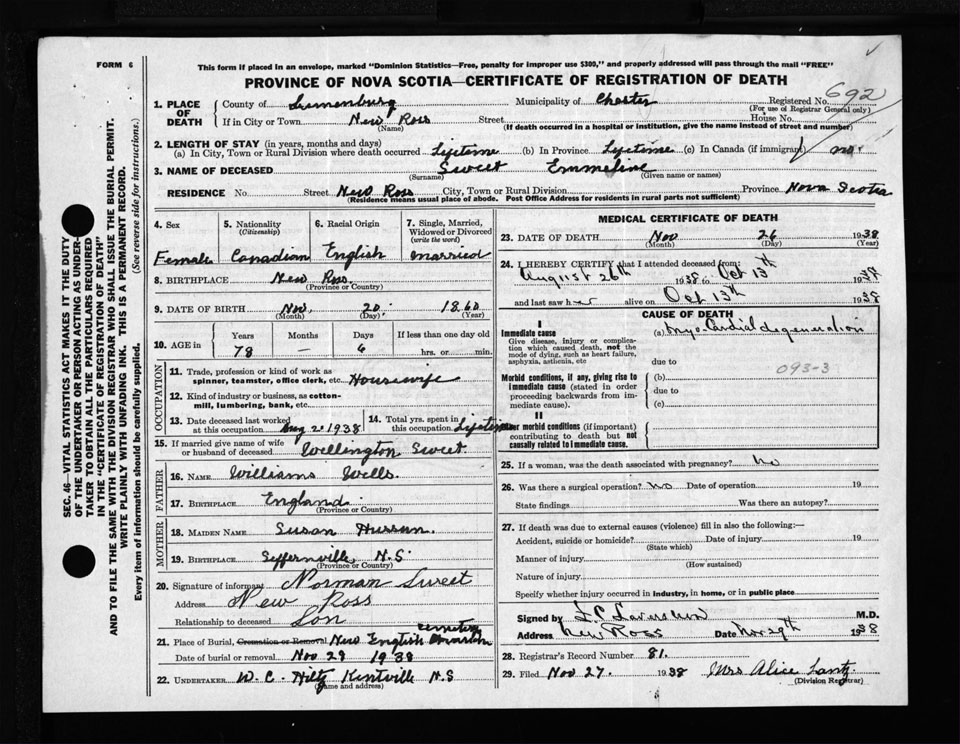 FORM 6
This form if placed in an envelope, marked "Dominion Statistics—Free, penalty for improper use $300," and properly addressed will pass through the mail "FREE"
PROVINCE OF NOVA SCOTIA—CERTIFICATE OF REGISTRATION OF DEATH
692
1. PLACE OF DEATH County of Lunenburg Municipality of Chester Registered No.
(For use of Registrar General only)
If in City or Town New Ross Street House No.
(Name) (If death occurred in a hospital or institution, give the name instead of street and number)
2. LENGTH OF STAY (in years, months and days)
(a) In City, Town or Rural Division where death occurred Lifetime (b) In Province Lifetime (c) In Canada (if immigrant) no.
3. NAME OF DECEASED Sweet Emmeline
(Surname) (Given name or names)
RESIDENCE No. Street New Ross City, Town or Rural Division Province Nova Scotia
(Residence means usual place of abode. Post Office Address for residents in rural parts not sufficient)
4. Sex 5. Nationality (Citizenship) 6. Racial Origin 7. Single, Married, Widowed or Divorced (write the word)
Female Canadian English Married
8. BIRTHPLACE New Ross
(Province or Country)
9. DATE OF BIRTH Nov. 20 1860
(Month) (Day) (Year)
10. AGE in Years Months Days If less than one day old
78 — 6 hrs. or min.
OCCUPATION
11. Trade, profession or kind of work as spinner, teamster, office clerk, etc. Housewife
12. Kind of industry or business, as cotton-mill, lumbering, bank, etc.
13. Date deceased last worked at this occupation Aug 2 1938 14. Total yrs. spent in this occupation Lifetime
15. If married give name of wife or husband of deceased Wellington Sweet.
FATHER
16. NAME Williams Wells.
17. BIRTHPLACE England
(Province or Country)
MOTHER
18. MAIDEN NAME Susan
19. BIRTHPLACE Seffernville N.S.
(Province or Country)
20. Signature of informant Norman Sweet
Address New Ross
Relationship to deceased Son
21. Place of Burial, Cremation or Removal New English Cemetery
Date of burial or removal Nov 29 1938
22. UNDERTAKER W. C. Hiltz Kentville N.S
(Name and address)
MEDICAL CERTIFICATE OF DEATH
23. DATE OF DEATH Nov 26 1938
(Month) (Day) (Year)
24. I HEREBY CERTIFY that I attended deceased from:
August 26th 1938 to Oct 13th 1938
and last saw her alive on Oct 13th 1938
CAUSE OF DEATH
I
Immediate cause (a) Myo-Cardial degeneration
Give disease, injury or complication which caused death, not the mode of dying, such as heart failure, asphyxia, asthenia, etc
due to
093-3
Morbid conditions, if any, giving rise to immediate cause (stated in order proceeding backwards from immediate cause).
(b)
due to
(c)
II
Other morbid conditions (if important) contributing to death but not causally related to immediate cause.
25. If a woman, was the death associated with pregnancy? No
26. Was there a surgical operation? no Date of operation 19
State findings Was there an autopsy?
27. If death was due to external causes (violence) fill in also the following:—
Accident, suicide or homicide? Date of injury 19
(State which)
Manner of injury
(How sustained)
Nature of injury
Specify whether injury occurred in industry, in home, or in public place
Signed by M.D.
Address New Ross Date Nov 29th 1938
28. Registrar's Record Number 81.
29. Filed Nov 27. 1938 Mrs Alice Lantz
(Division Registrar)
SEC. 46—VITAL STATISTICS ACT MAKES IT THE DUTY
OF THE UNDERTAKER OR PERSON ACTING AS UNDER-
TAKER TO OBTAIN ALL THE PARTICULARS REQUIRED
IN THE "CERTIFICATE OF REGISTRATION OF DEATH"
AND TO FILE THE SAME WITH THE DIVISION REGISTRAR WHO SHALL ISSUE THE BURIAL PERMIT.
WRITE PLAINLY WITH UNFADING INK. THIS IS A PERMANENT RECORD.
Every item of information should be carefully supplied. (See reverse side for instructions.)